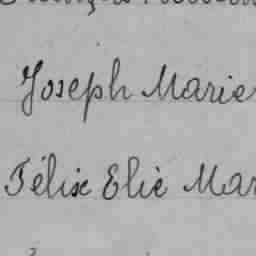 Joseph Marie
Félix Elie Mar